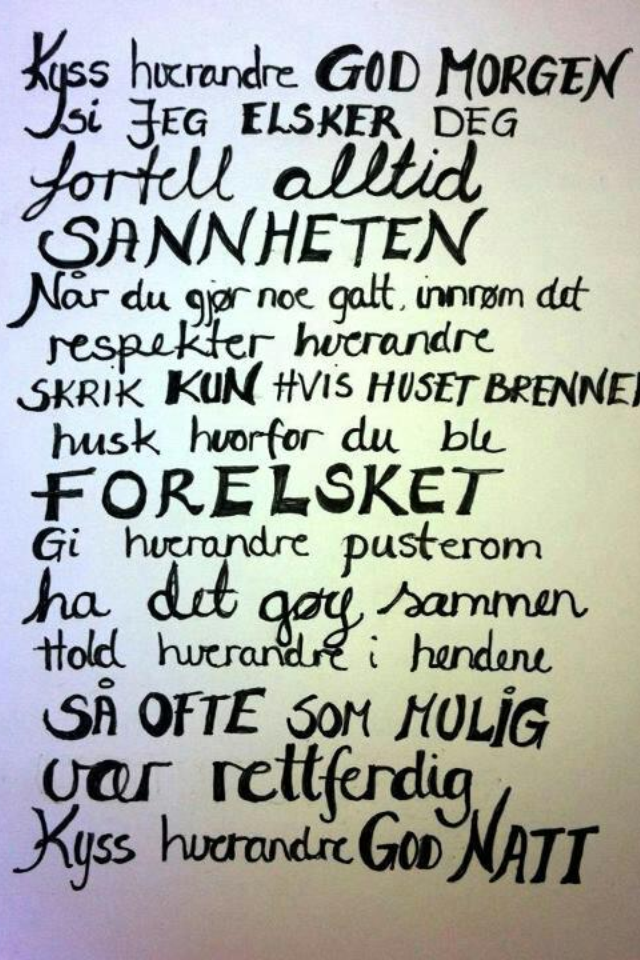 Kyss hverandre GOD MORGEN
si JEG ELSKER DEG
fortell alltid
SANNHETEN
Når du gjør noe galt, innrøm det
respekter hverandre
SKRIK KUN HVIS HUSET BRENNER
husk hvorfor du ble
FORELSKET
Gi hverandre pusterom
ha det gøy sammen
Hold hverandre i hendene
SÅ OFTE SOM MULIG
vær rettferdig
Kyss hverandre GOD NATT